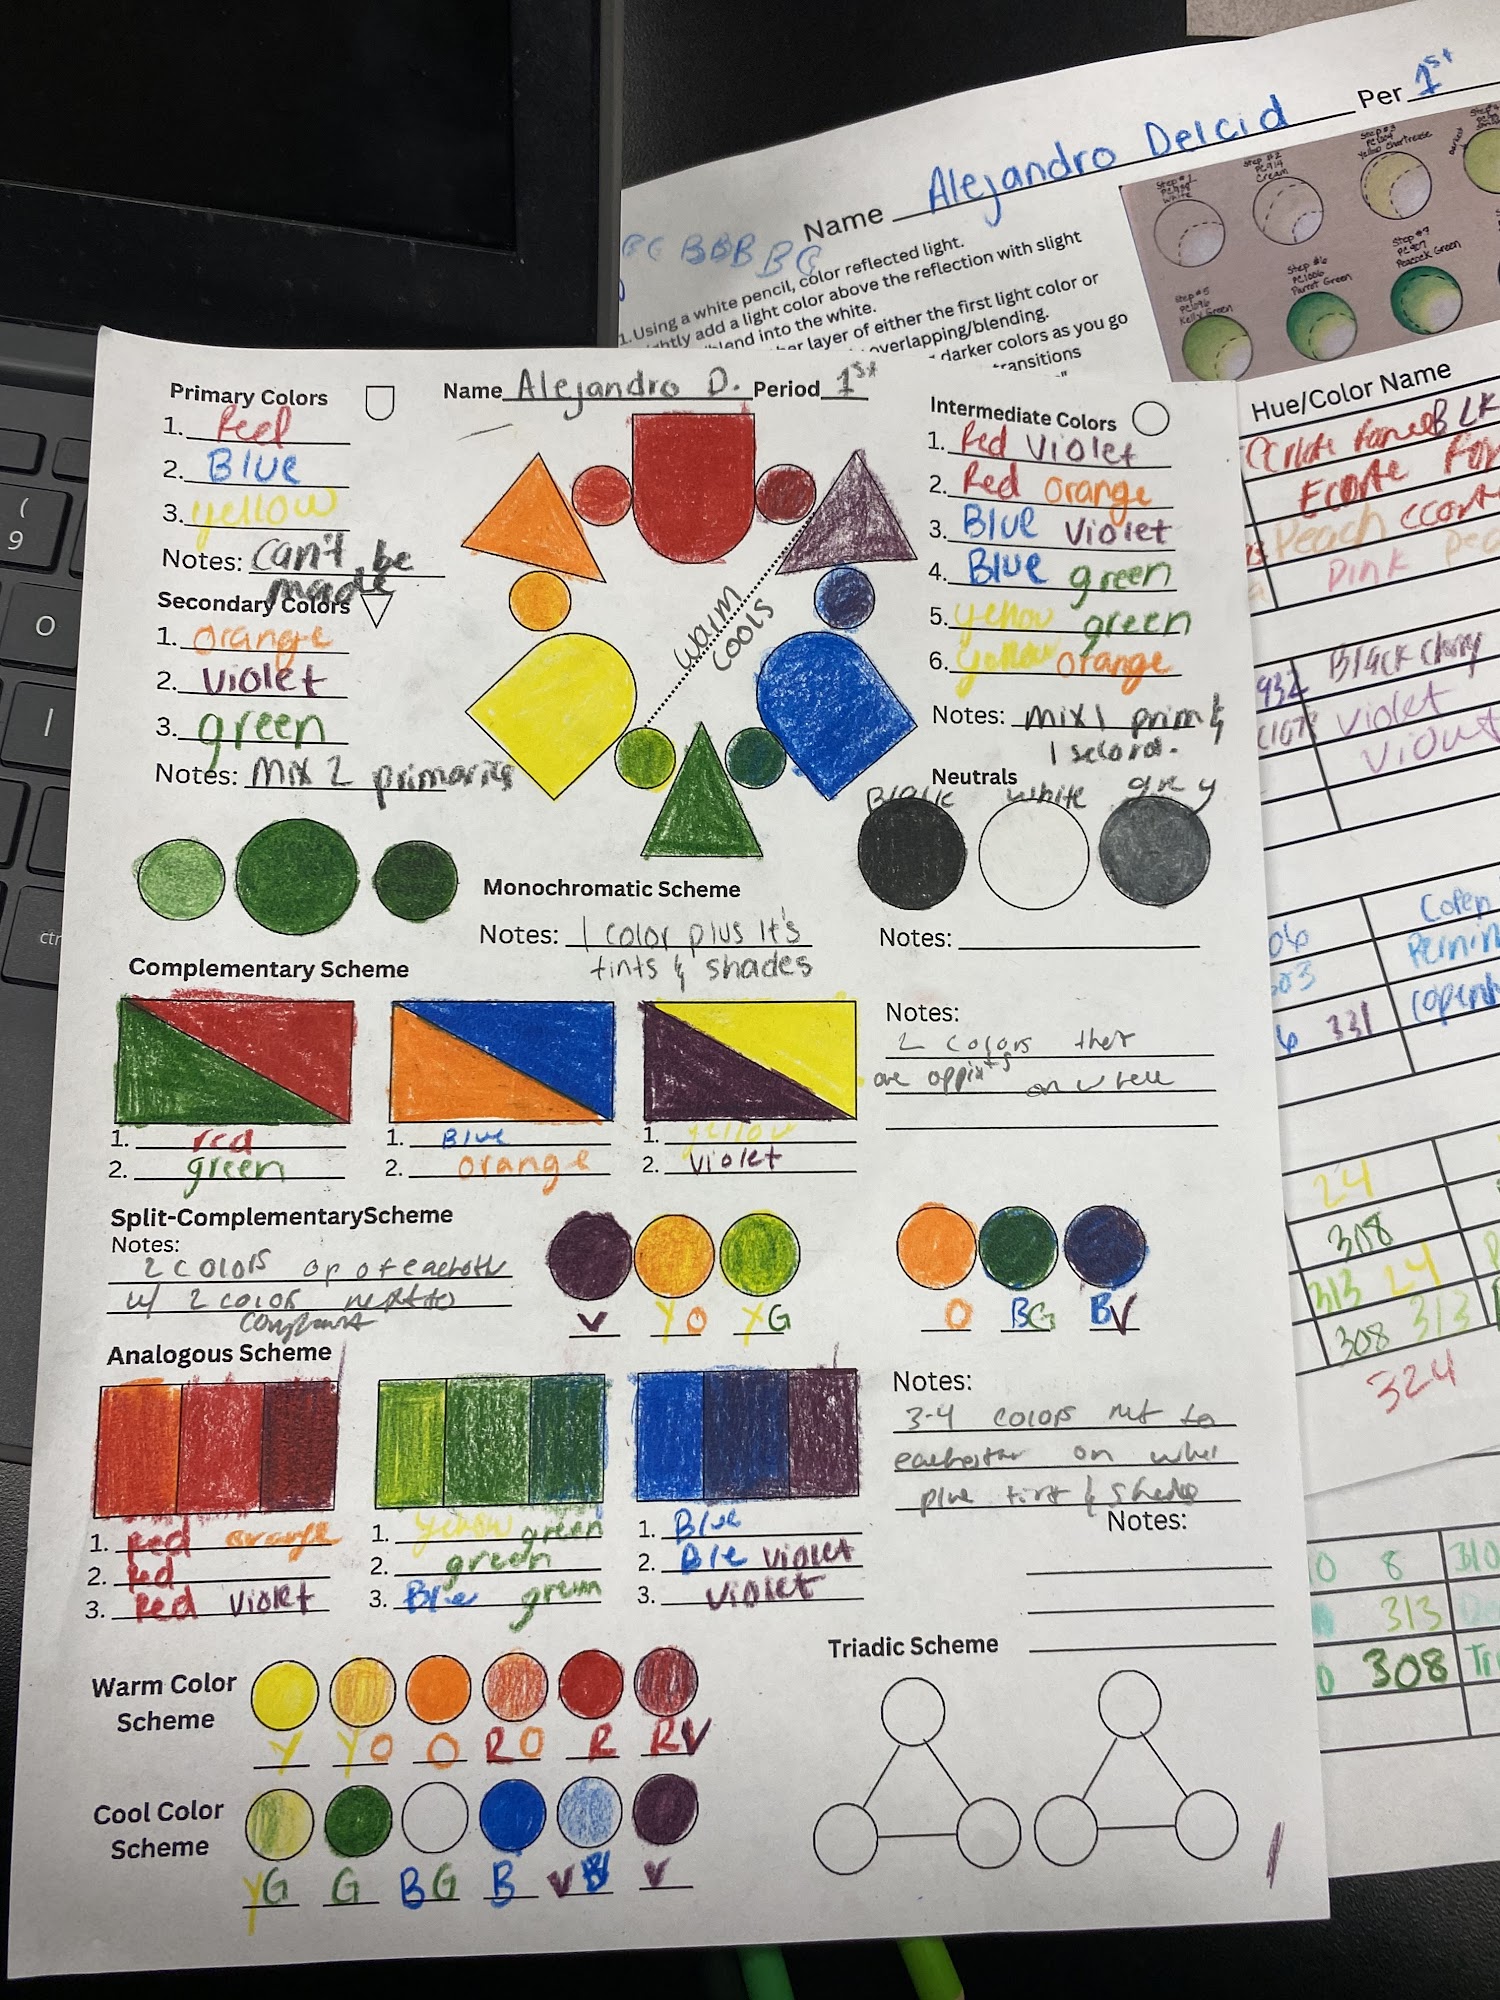 Name Alejandro Delcid Per 1st
1. Using a white pencil, color reflected light.
add a light color above the reflection with slight
into the white.
layer of either the first light color or
overlapping/blending.
darker colors as you go
transitions
Step #1
White
Step #2
PC914
Cream
Yellow Chartreuse
Step #5
Kelly Green
Step #6
PC1006
Parrot Green
Step #7
PC907
Peacock Green
Hue/Color Name
BLK
Peach
Pink
932
Black Cherry
violet
331
24
308
313 24
308 313
324
8 310
313
308
Name Alejandro D. Period 1st
Primary Colors
1. Red
2. Blue
3. yellow
Notes: can't be
made
Secondary Colors
1. orange
2. violet
3. green
Notes: Mix 2 primaries
warm
cools
Intermediate Colors
1. Red violet
2. Red orange
3. Blue violet
4. Blue green
5. yellow green
6. yellow orange
Notes: mix 1 prim &
1 second.
Neutrals
Black white grey
Notes:
Monochromatic Scheme
Notes: 1 color plus it's
tints & shades
Complementary Scheme
1. red
2. green
1. Blue
2. orange
1. yellow
2. violet
Notes:
2 colors that
are on
Split-ComplementaryScheme
Notes:
2 colors op of
w/ 2 color next to
V YO YG
O BG BV
Analogous Scheme
1. Red orange
2. Red
3. Red violet
1. yellow green
2. green
3. Blue green
1. Blue
2. Ble violet
3. violet
Notes:
3-4 colors to
on
& shades
Notes:
Warm Color
Scheme
Y YO O RO R RV
Cool Color
Scheme
YG G BG B VB V
Triadic Scheme